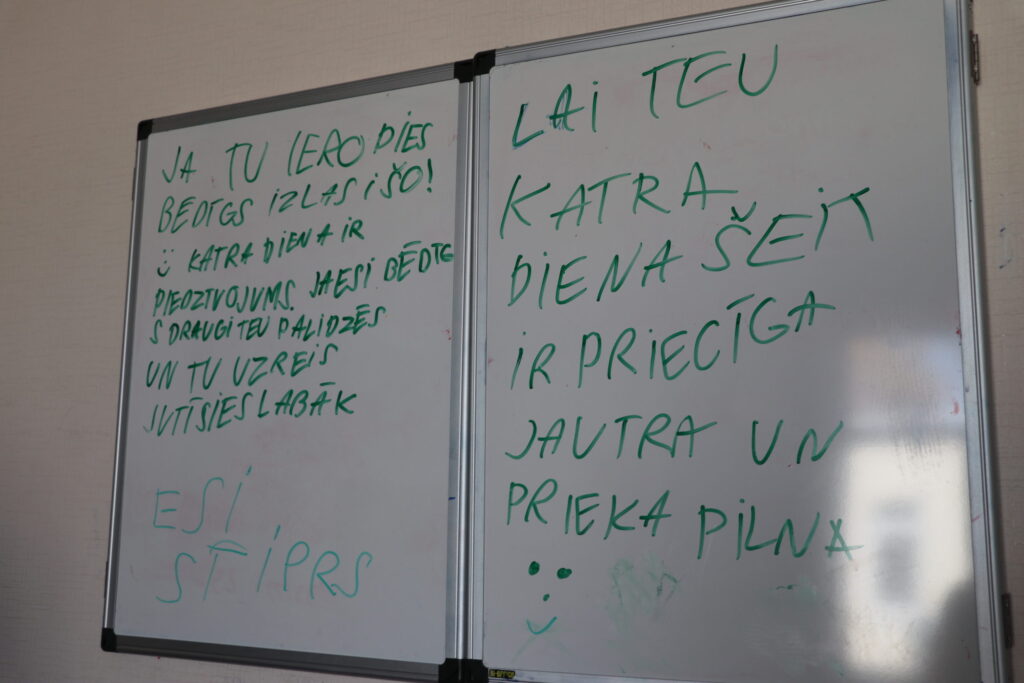 JA TU IERODIES
BĒDĪGS IZLASI ŠO!
KATRA DIENA IR
PIEDZĪVOJUMS. JA ESI BĒDĪG
S DRAUGI TEV PALIDZĒS
UN TU UZREIS
JUTĪSIES LABĀK
ESI
STIPRS
LAI TEU
KATRA
DIENA ŠEIT
IR PRIECĪGA
JAUTRA UN
PRIEKA PILNA